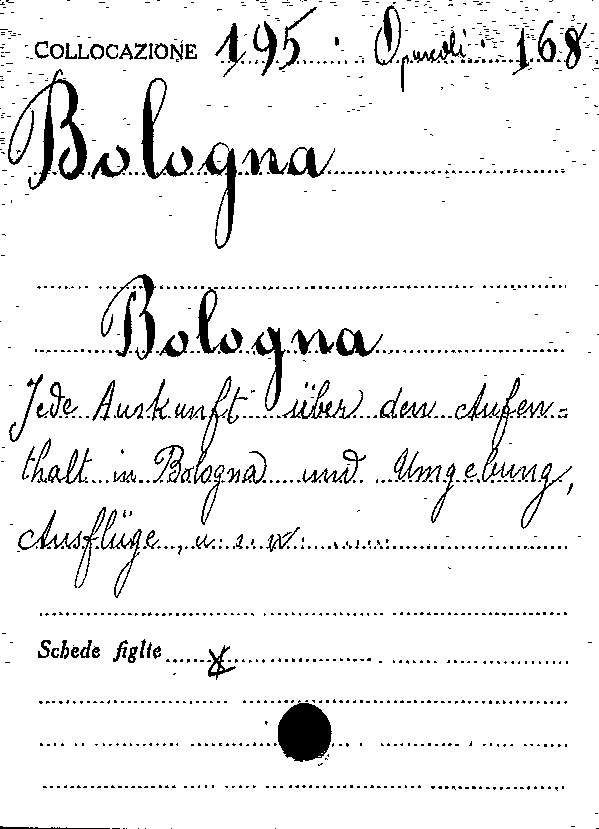 COLLOCAZIONE 195. Opuscoli. 168
Bologna
Bologna
Jede Auskunft über den Aufen=
thalt in Bologna und Umgebung,
Ausflüge, u. s. w. .....
Schede figlie